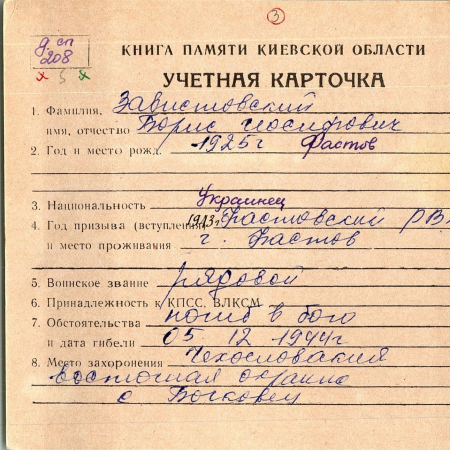 3
д. сп
208
х 5 х
КНИГА ПАМЯТИ КИЕВСКОЙ ОБЛАСТИ
УЧЕТНАЯ КАРТОЧКА
1. Фамилия, Завистовский
имя, отчество Борис Иосифович
2. Год и место рожд. 1925г Фастов
3. Национальность Украинец
4. Год призыва (вступления) 1943г Фастовский РВ
и место проживания г. Фастов
5. Воинское звание рядовой
6. Принадлежность к КПСС, ВЛКСМ
7. Обстоятельства погиб в бою
и дата гибели 05 12 1944г
8. Место захоронения Чехословакия
восточная окраина
с Бочковец